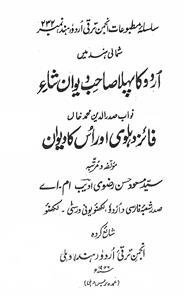 سلسلۂ مطبوعات انجمن ترقی اردو (ہند) نمبر ۲۳۲
شمالی ہند میں
اردو کا پہلا صاحبِ دیوان شاعر
نواب صدرالدین محمد خاں
فائز دہلوی اور اُس کا دیوان
مؤلفہ و مرتبہ
سید مسعود حسن رضوی ادیب ایم۔ اے
صدر شعبۂ فارسی و اردو، لکھنؤ یونی ورسٹی۔ لکھنؤ
شائع کردہ
انجمن ترقی اردو (ہند) دہلی